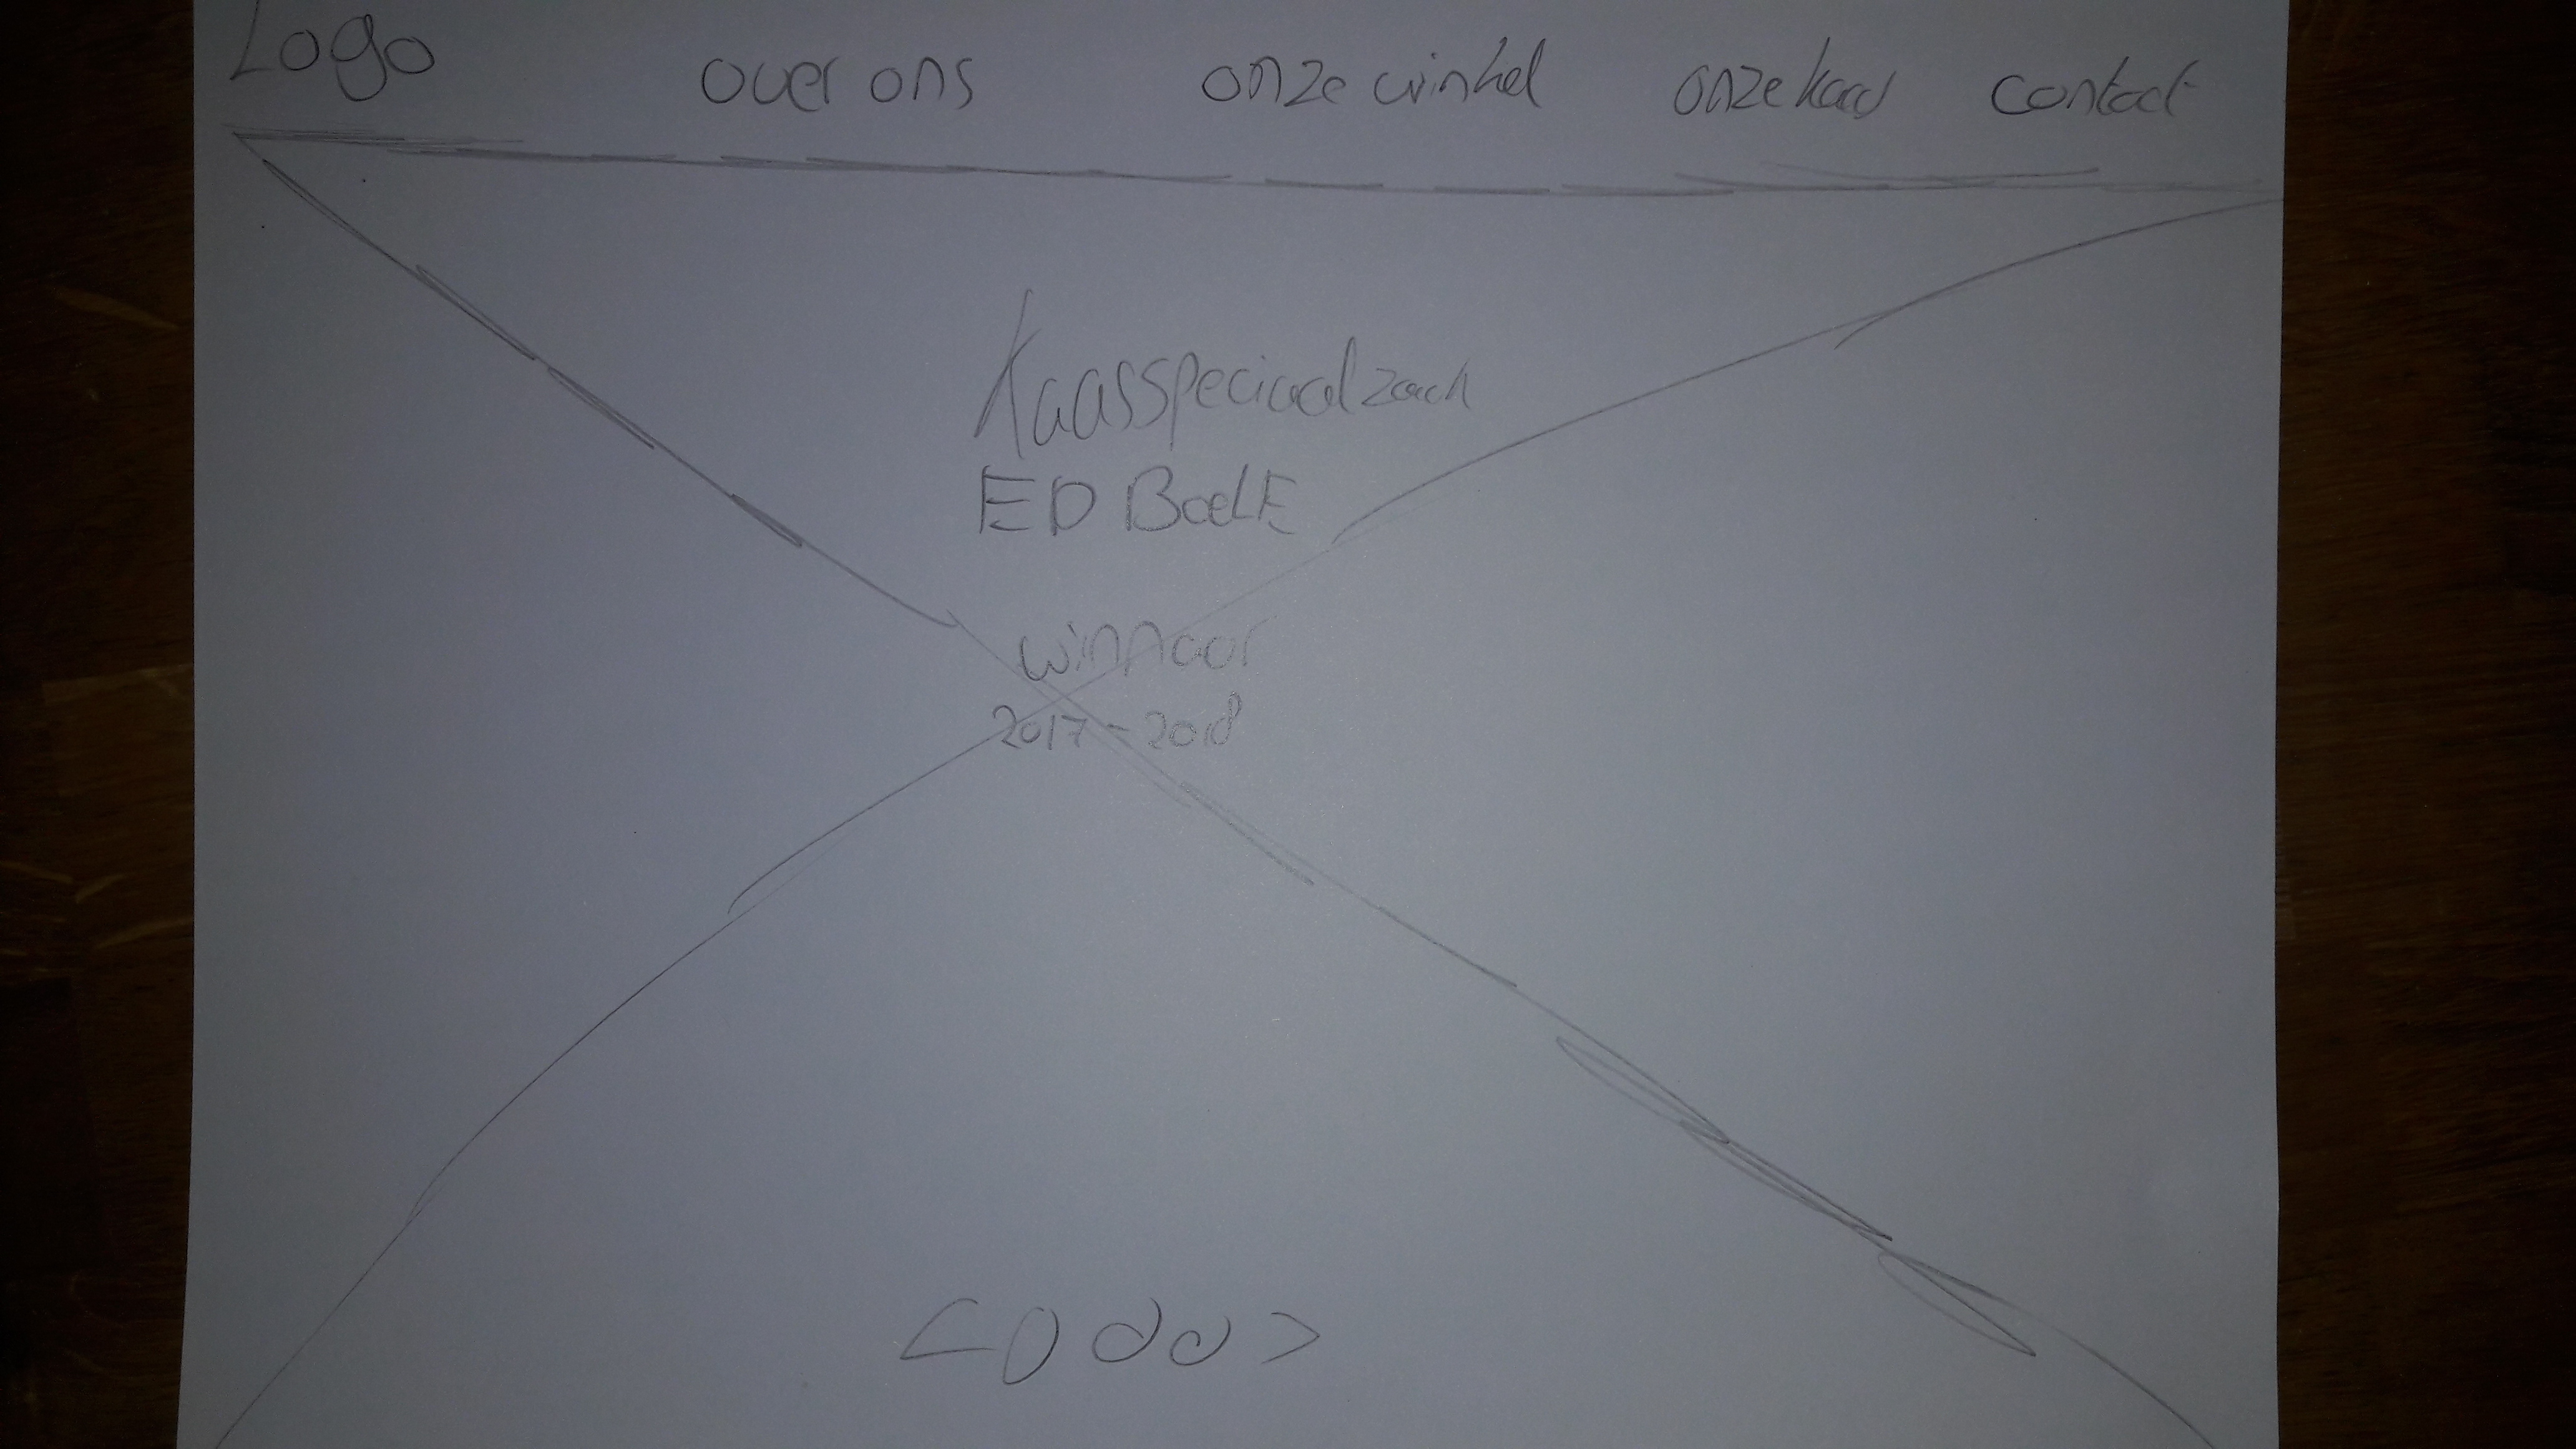 Logo over ons onze winkel onze kaas contact
Kaasspeciaalzaak
ED BoelE
winnaar
2017 - 2018